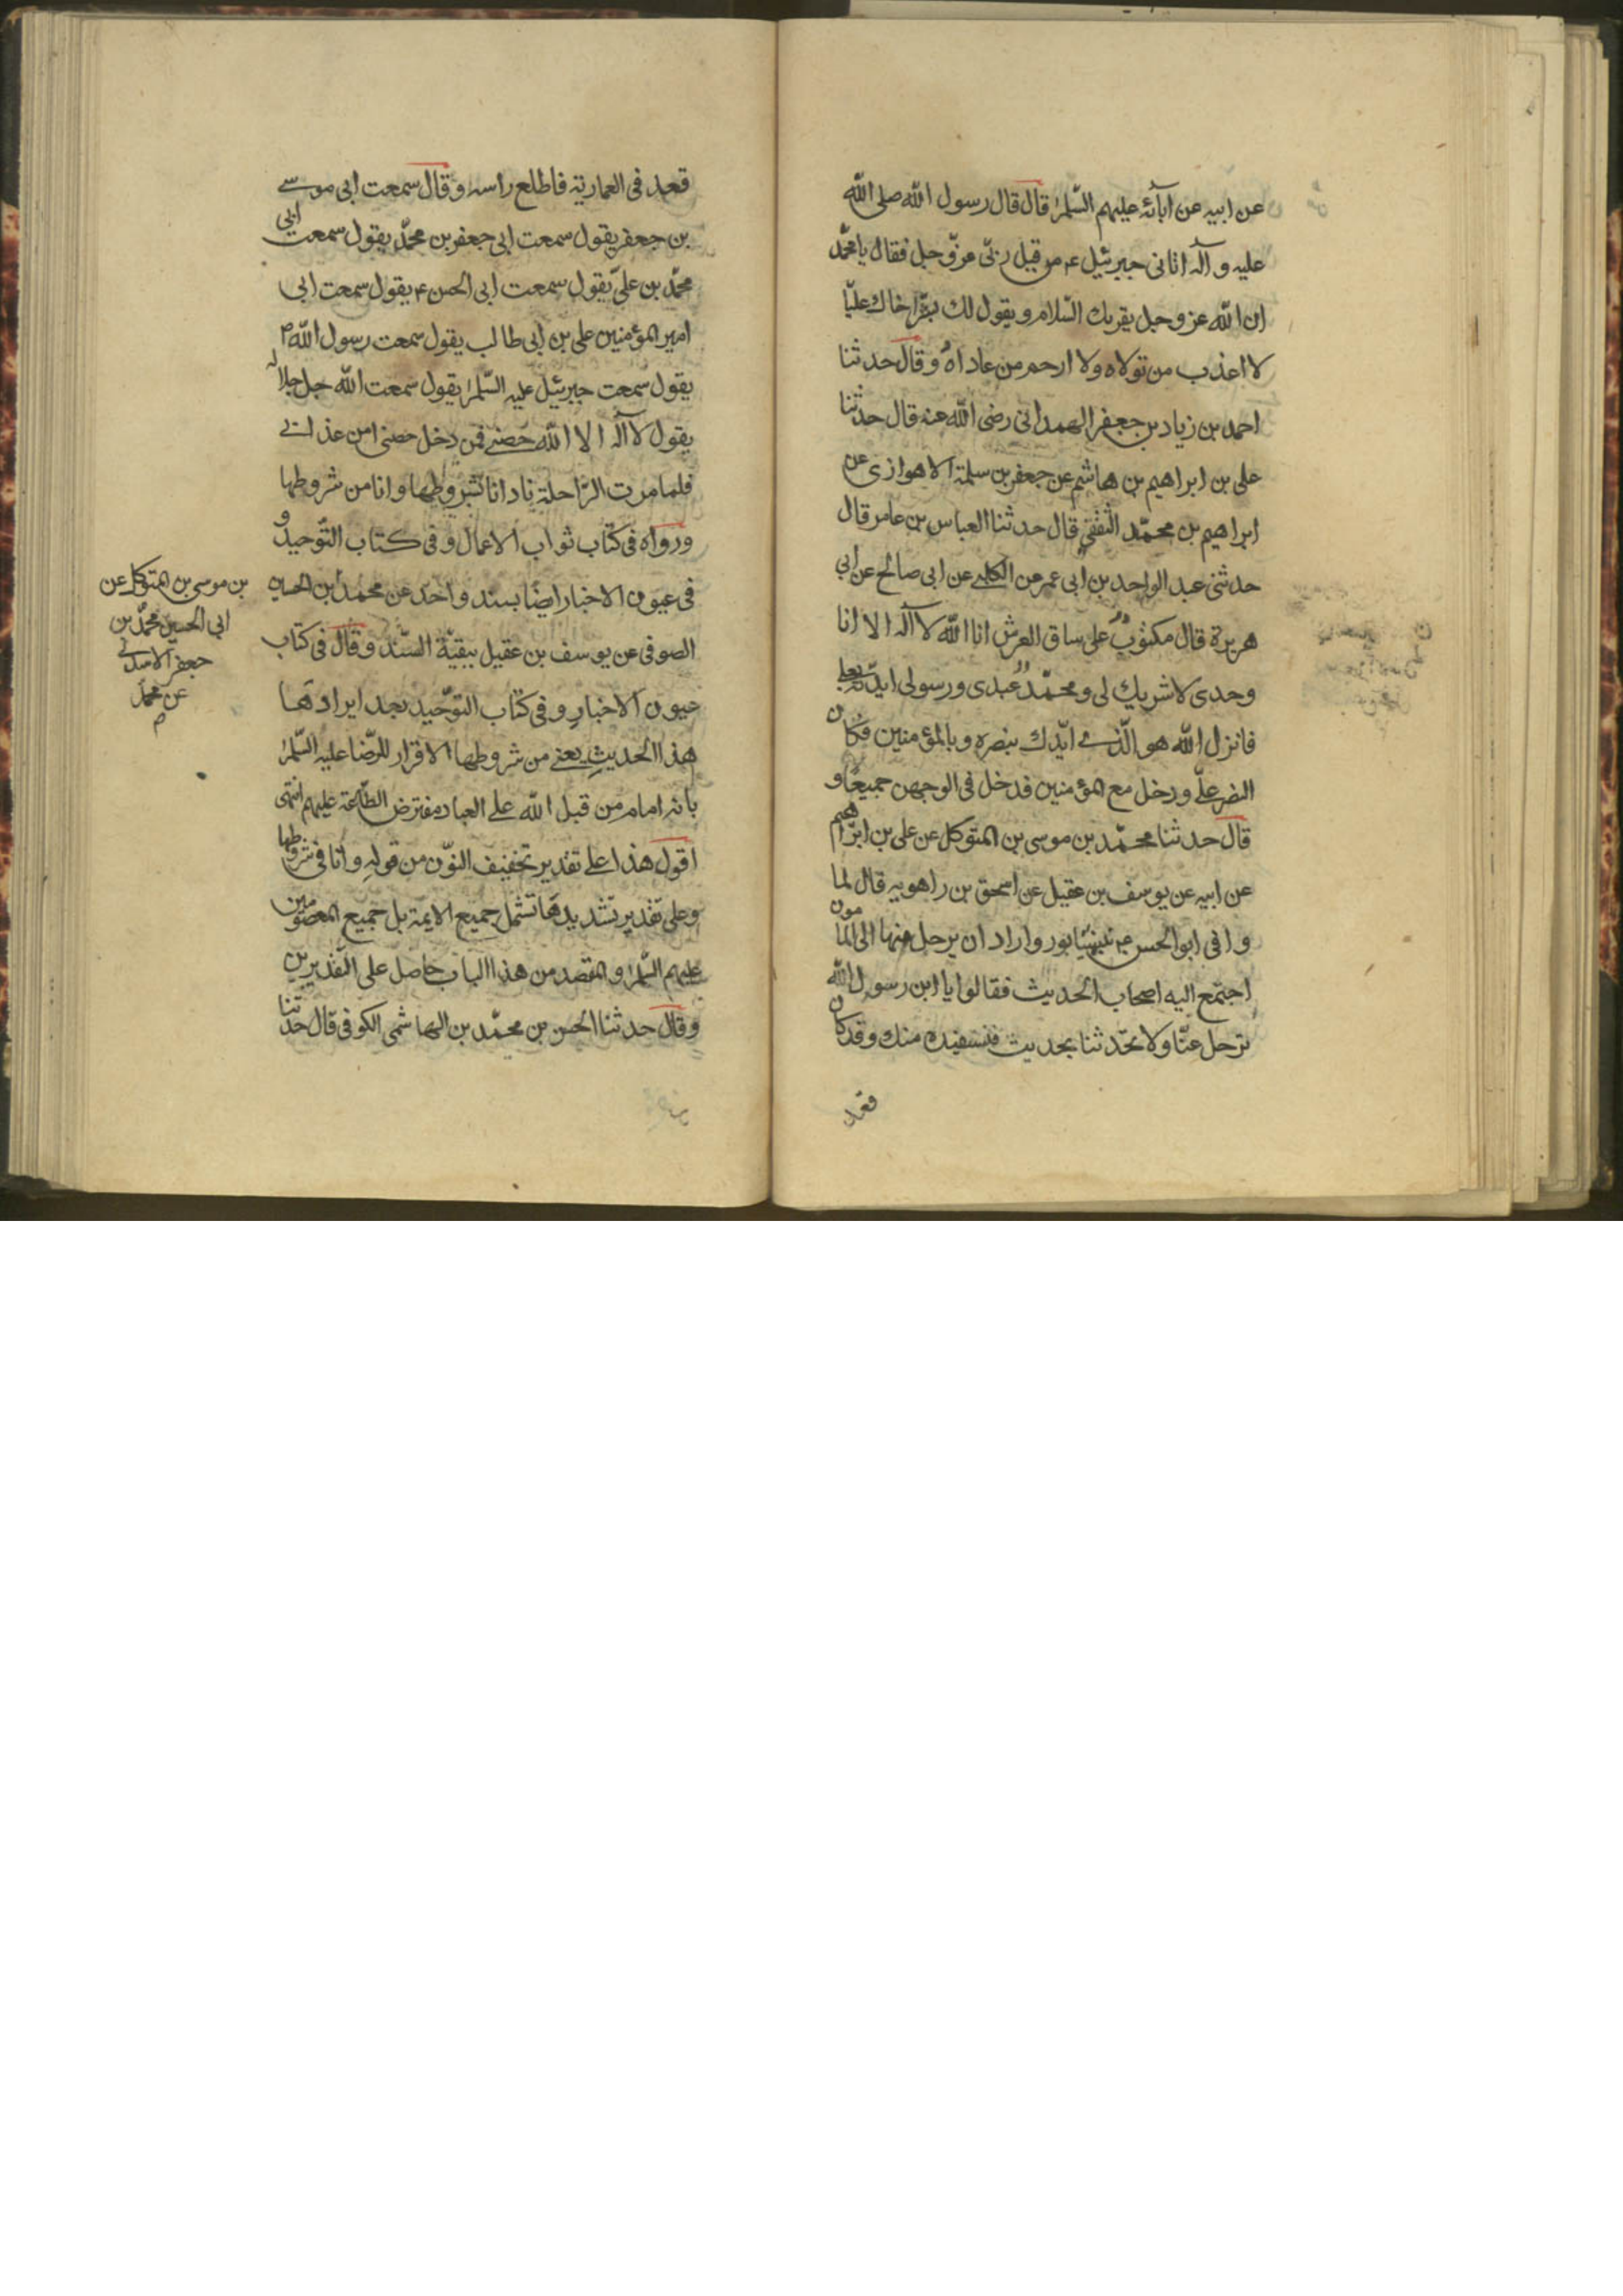 عن ابيه عن آبائه عليهم السّلم قال قال رسول الله صلى الله
عليه وآله اتانى جبرئيل ع من قبل ربّى عزّ وجل فقال يا محمّد
ان الله عز وجل يقرئك السّلام ويقول لك بشّر اخاك عليّا
لا اعذب من تولاه ولا ارحم من عاداه وقال حدثنا
احمد بن زياد بن جعفر الهمدانى رضى الله عنه قال حدثنا
على بن ابراهيم بن هاشم عن جعفر بن سلمة الاهوازى عن
ابراهيم بن محمّد الثقفى قال حدثنا العباس بن عامر قال
حدثنى عبد الواحد بن ابى عمر عن الكلبى عن ابى صالح عن ابى
هريرة قال مكتوب على ساق العرش انا الله لا آله الا انا
وحدى لا شريك لى ومحمّد عبدى ورسولى ايدّته بعلى
فانزل الله هو الّذى ايّدك بنصره وبالمؤمنين فكان
النصر علىّ ودخل مع المؤمنين فدخل فى الوجهين جميعًا و
قال حدثنا محمّد بن موسى بن المتوكل عن على بن ابرّاهيم
عن ابيه عن يوسف بن عقيل عن اسحق بن راهويه قال لما
وافى ابو الحسن ع نيشابور واراد ان يرحل منها الى المامون
اجتمع اليه اصحاب الحديث فقالوا يا ابن رسول الله
ترحل عنّا ولا تحّدثنا بحديث فنستفيده منك وقد كان
قعد
قعد فى العمارية فاطلع راسه وقال سمعت ابى موسى
بن جعفر يقول سمعت ابى جعفر بن محمّد يقول سمعت ابى
محمّد بن علىّ يقول سمعت ابى الحسن ع يقول سمعت ابى
امير المؤمنين على بن ابى طالب يقول سمعت رسول الله ص
يقول سمعت جبرئيل عليه السّلم يقول سمعت الله جل جلاله
يقول لا آله الا الله حصنى فمن دخل حصنى امن عذابى
فلما مرت الرّاحلة نادانا بشروطها وانا من شروطها
ورواه فى كتاب ثواب الاعمال وفى كتاب التّوحيد و
فى عيون الاخبار ايضًا بسند واحد عن محمد ابن الحسين
الصوفى عن يوسف بن عقيل ببقيّة السّند وقال فى كتاب
عيون الاخبار وفى كتاب التوّحيد بعد ايرادهما
هذا الحديث يعنى من شروطها الاقرار للرّضا عليه السّلم
بانه امام من قبل الله على العباد مفترض الطّاعة عليهم انتهى
اقول هذا على تقدير تخفيف النوّن من قوله وانا فى شروطها
وعلى تقدير تشديدها تشمل جميع الايمة بل جميع المعصومين
عليهم السّلم والمقصد من هذا الباب حاصل على التّقديرين
وقال حدثنا الحسن بن محمّد بن الهاشمى الكوفى قال حدثنا
بن موسى بن المتوكل عن
ابى الحسين محمّد بن
جعفر الاسدى
عن محمّد